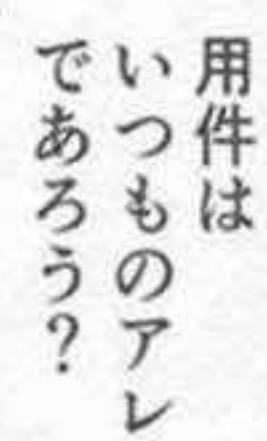 用件は
いつものアレ
であろう？